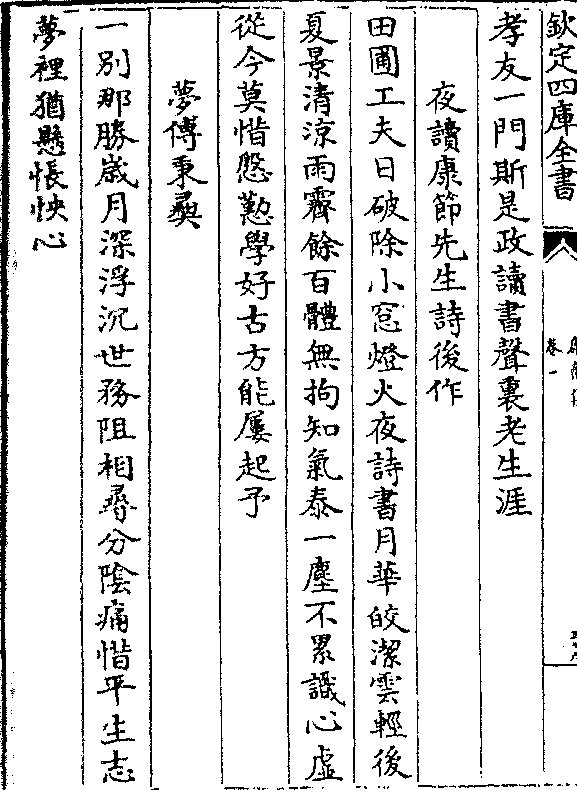 欽定四庫全書
卷一
孝友一門斯是政讀書聲裏老生涯
夜讀康節先生詩後作
田圃工夫日破除小窓燈火夜詩書月華皎潔雲輕後
夏景清涼雨霽餘百體無拘知氣泰一塵不累識心虛
從今莫惜慇懃學好古方能屢起予
夢傅秉彝
一別那勝歲月深浮沉世務阻相尋分陰痛惜平生志
夢裡猶懸悵怏心